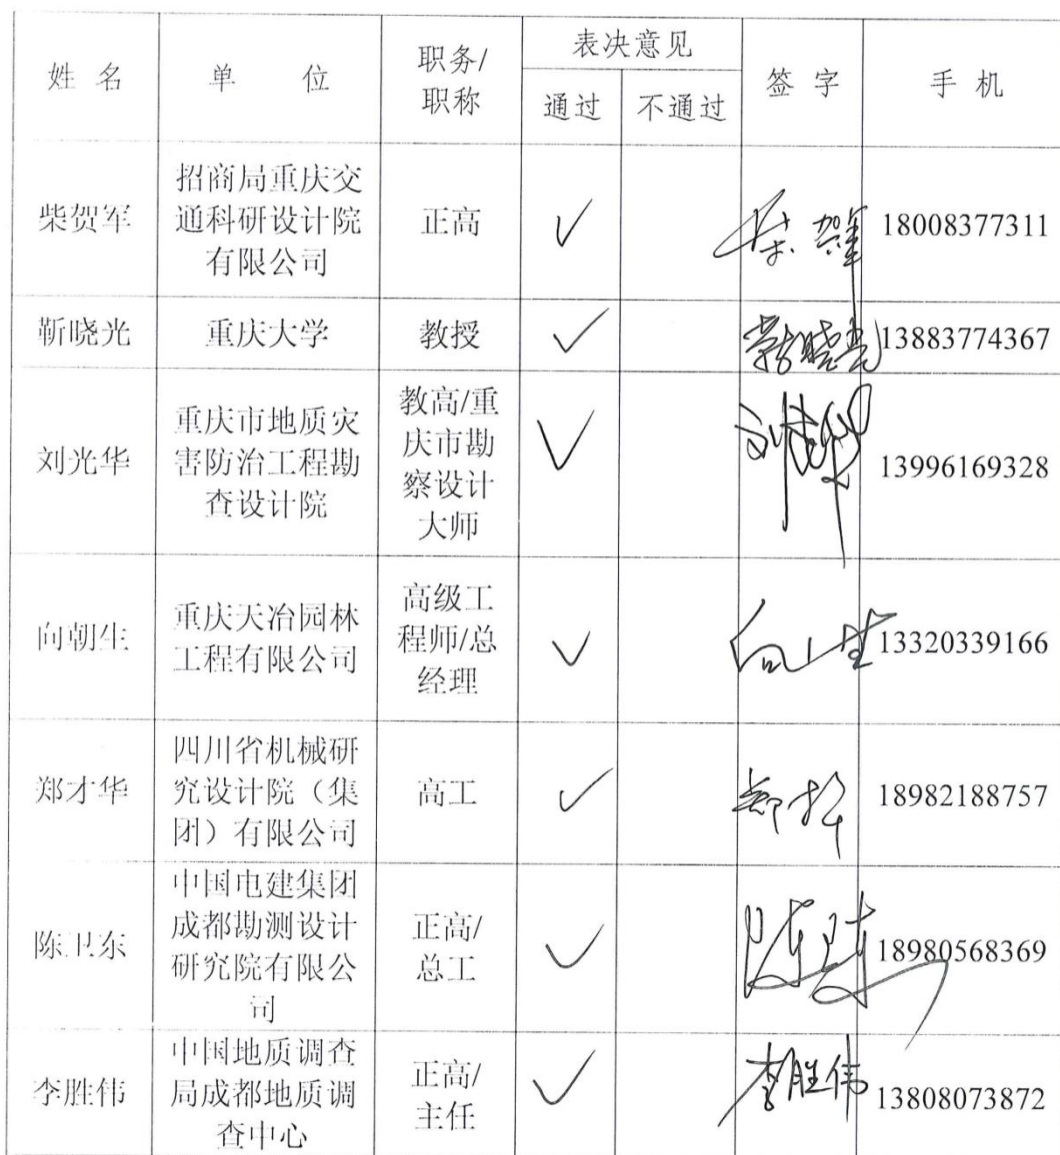 姓 名 单 位 职务/职称 表决意见 签 字 手 机
通过 不通过
柴贺军 招商局重庆交通科研设计院有限公司 正高 ✓ 柴贺军 18008377311
靳晓光 重庆大学 教授 ✓ 靳晓光 13883774367
刘光华 重庆市地质灾害防治工程勘查设计院 教高/重庆市勘察设计大师 ✓ 刘光华 13996169328
向朝生 重庆天冶园林工程有限公司 高级工程师/总经理 ✓ 13320339166
郑才华 四川省机械研究设计院（集团）有限公司 高工 ✓ 18982188757
陈卫东 中国电建集团成都勘测设计研究院有限公司 正高/总工 ✓ 陈卫东 18980568369
李胜伟 中国地质调查局成都地质调查中心 正高/主任 ✓ 李胜伟 13808073872